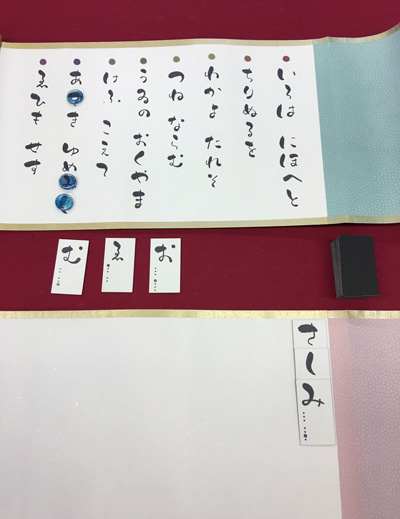 いろは にほへと
ちりぬるを
わかよ たれそ
つね ならむ
うゐの おくやま
けふ こえて
あ き ゆめ
ゑひも せす
む
ゑ
お
さしみ